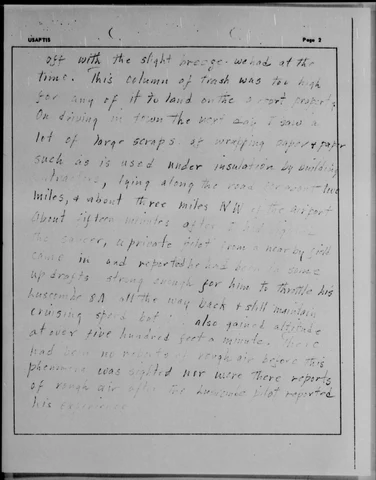 USAFTIS Page 2
off with the slight breeze we had at the
time. This column of trash was too high
for any of it to land on the airport property.
On driving in town the next day I saw a
lot of large scraps of wrapping paper & paper
such as is used under insulation by building
lying along the road
miles, & about three miles NW of the airport
About fifteen minutes after I
the saucer, a private pilot from a nearby field
came in and reported he had been in some
updrafts strong enough for him to throttle his
Luscombe 8A all the way back & still maintain
cruising speed but also gained altitude
at over five hundred feet a minute. There
had been no reports of rough air before this
phenomena was sighted nor were there reports
of rough air after the Luscombe pilot reported
his experience